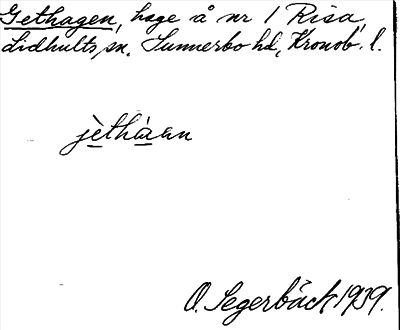 Gethagen, hage å nr 1 Risa,
Lidhults sn. Sunnerbo hd, Kronob. l.
jèthàan
O. Segerbäck 1939.